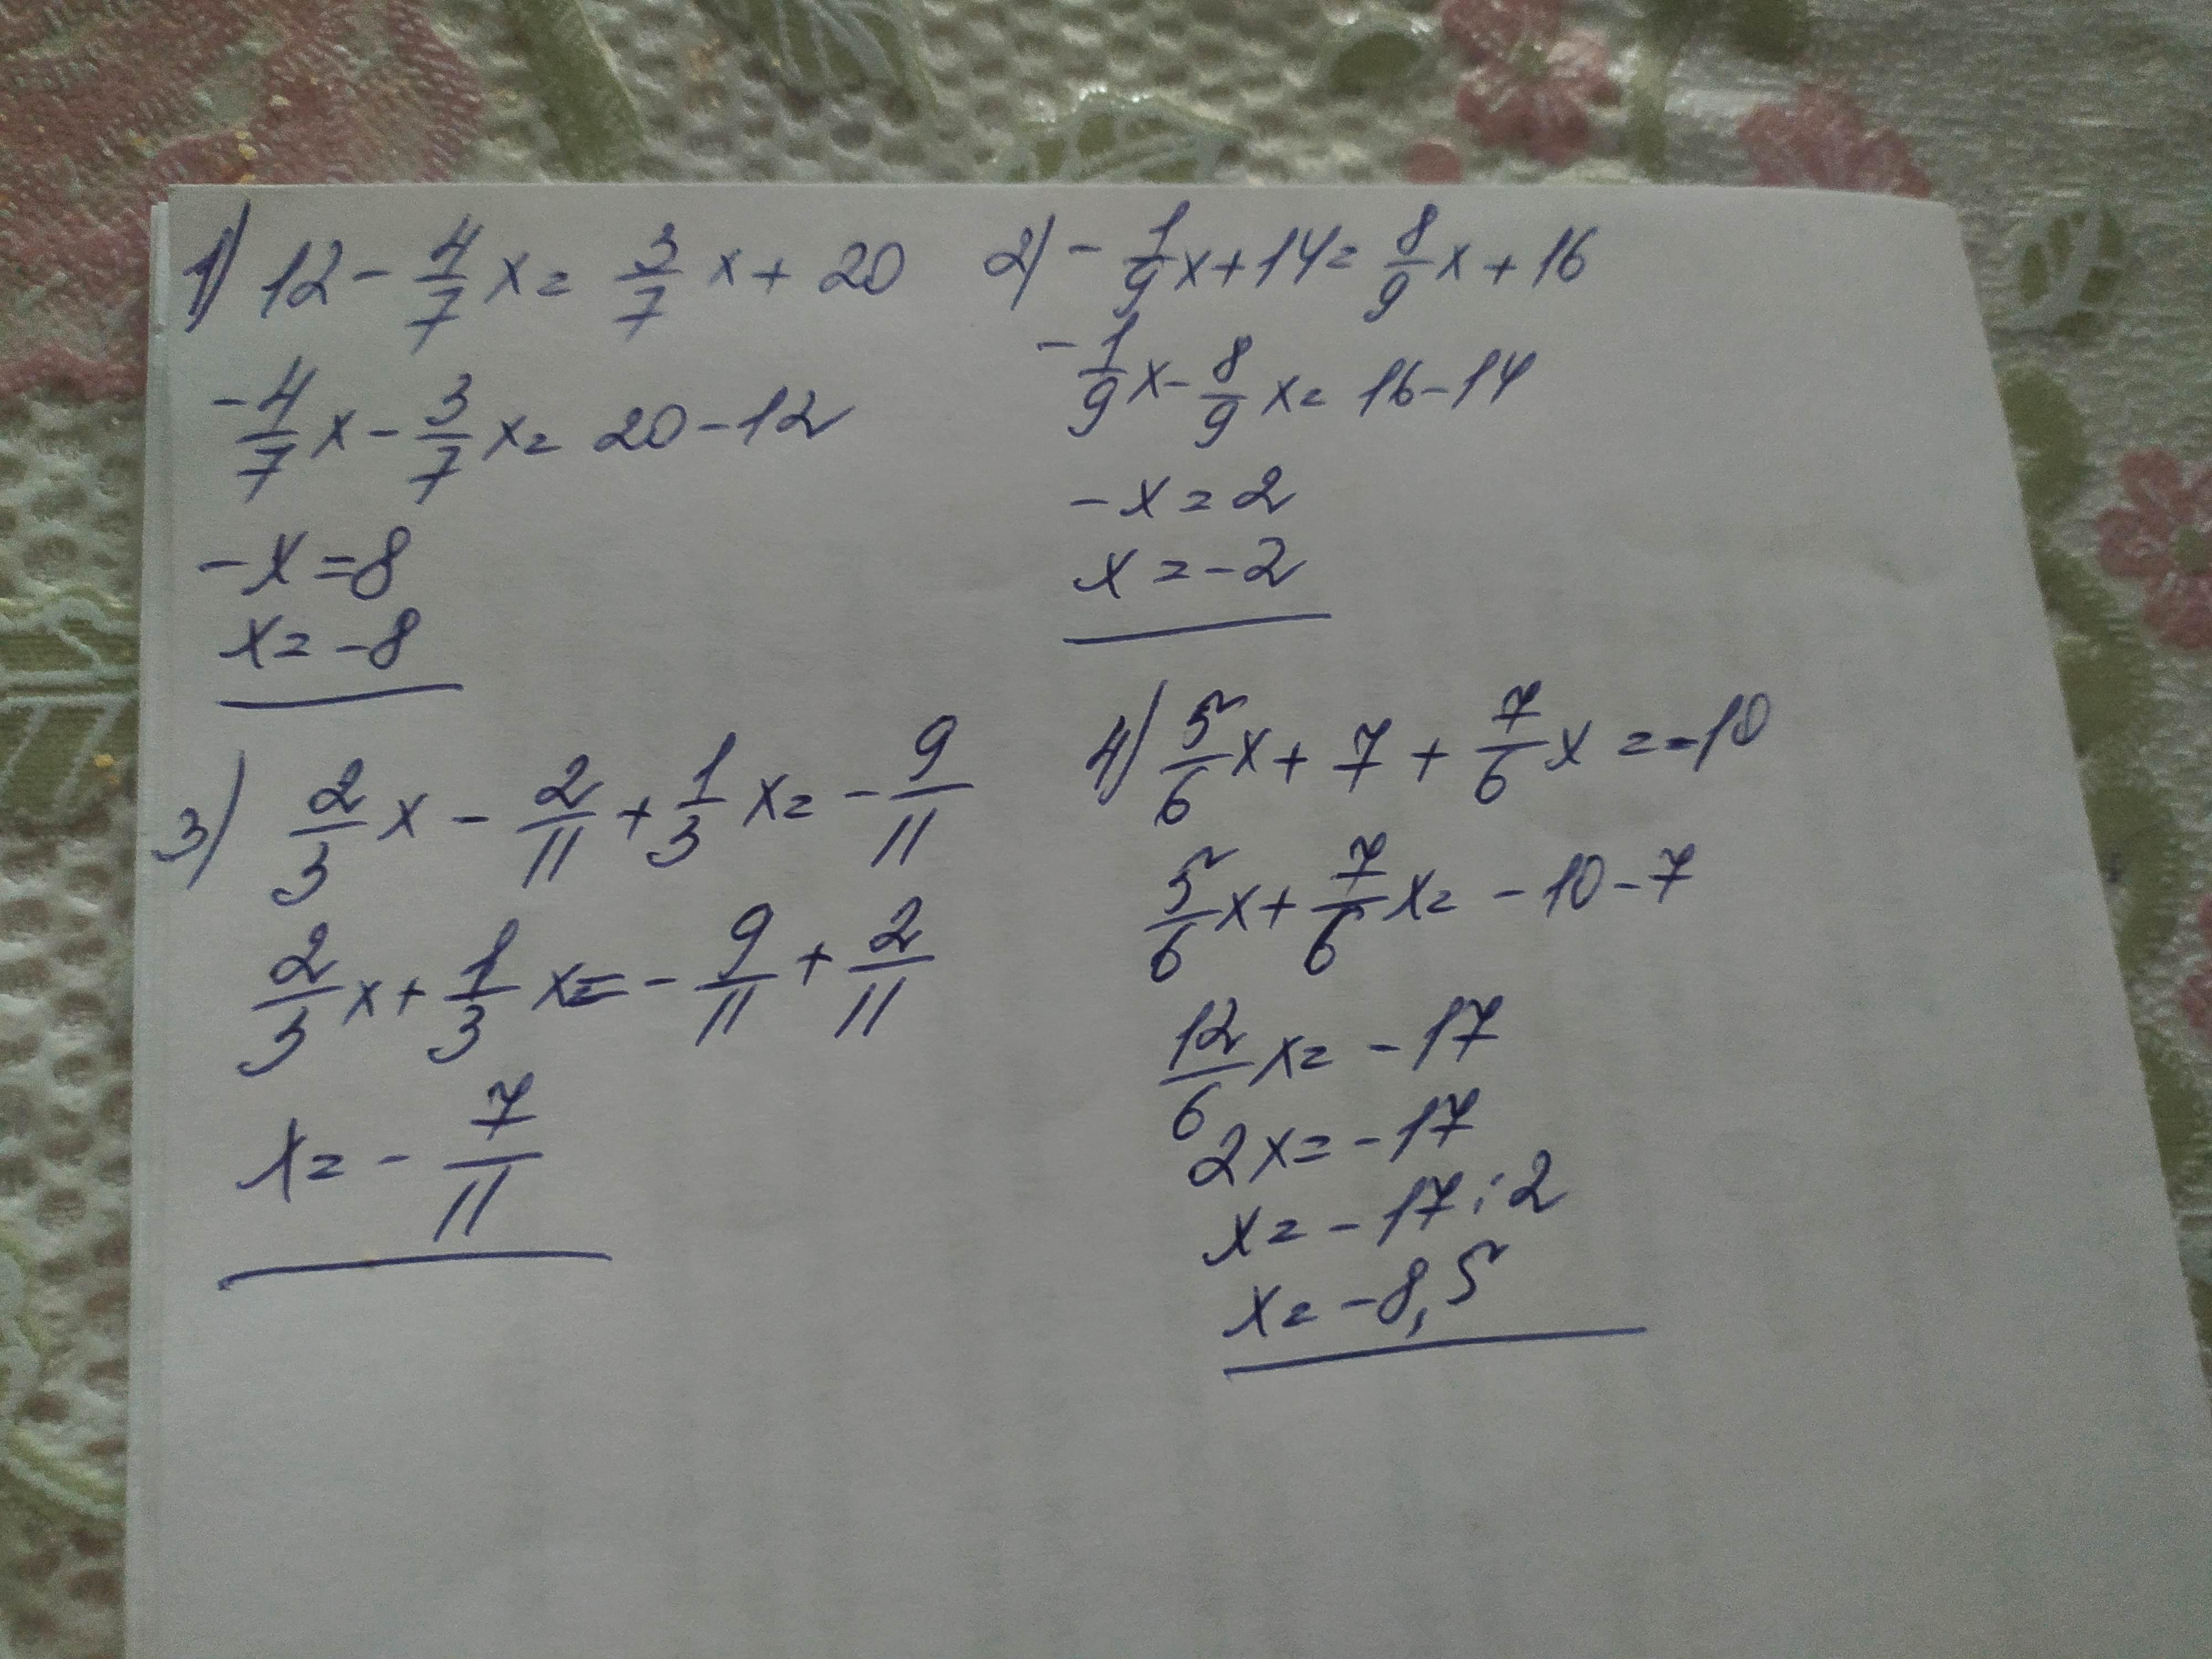 1) 12 - 4/7 x = 3/7 x + 20
- 4/7 x - 3/7 x = 20 - 12
- x = 8
x = - 8
2) - 1/9 x + 14 = 8/9 x + 16
- 1/9 x - 8/9 x = 16 - 14
- x = 2
x = - 2
3) 2/3 x - 2/11 + 1/3 x = - 9/11
2/3 x + 1/3 x = - 9/11 + 2/11
x = - 7/11
4) 5/6 x + 7 + 7/6 x = -10
5/6 x + 7/6 x = - 10 - 7
12/6 x = - 17
2x = - 17
x = - 17 : 2
x = - 8,5